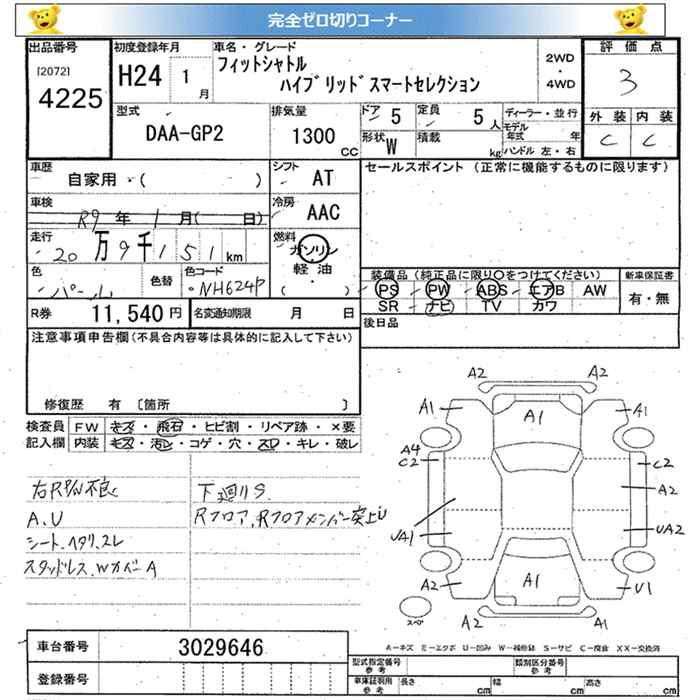 完全ゼロ切りコーナー
出品番号 初度登録年月 車名・グレード 評価点
[2072] 4225 H24 1月 フィットシャトル 2WD・4WD 3
ハイブリッドスマートセレクション
型式 排気量 ドア 5 定員 5人 ディーラー・並行 外装 内装
DAA-GP2 1300cc 形状 W 積載 kg モデル年式 年 C C
ハンドル 左・右
車歴 シフト セールスポイント (正常に機能するものに限ります)
自家用・( ) AT
車検 R9年 1月( 日) 冷房 AAC
走行 20万9千151km 燃料 ガソリン 軽油 ( )
色 パール 色替 色コード NH624P
装備品(純正品に限り○をつけてください) 新車保証書
PS PW ABS エアB AW 有・無
SR ナビ TV カワ
R券 11,540円 名変通知期限 月 日 後日品
注意事項申告欄(不具合内容等は具体的に記入して下さい)
修復歴 有 〔箇所 〕
検査員記入欄 FW キズ・飛石・ヒビ割・リペア跡・×要
内装 キズ・汚レ・コゲ・穴・スレ・キレ・破レ
右R P/W不良
A.U
シート.ヘタリ.スレ
スタッドレス.WカバーA
下廻りS
Rフロア,Rフロアメンバー突上U
A2 A2
A1 A1 A1
A4
C2 C2
A2
UA1 UA2
A2 A1 U1
スペア A2 A1
A-キズ E-エクボ U-凹み W-補修跡 S-サビ C-腐食 XX-交換済
車台番号 3029646
登録番号
型式指定番号 参考 類別区分番号 参考
車庫証明用 参考 長さ cm 幅 cm 高さ cm